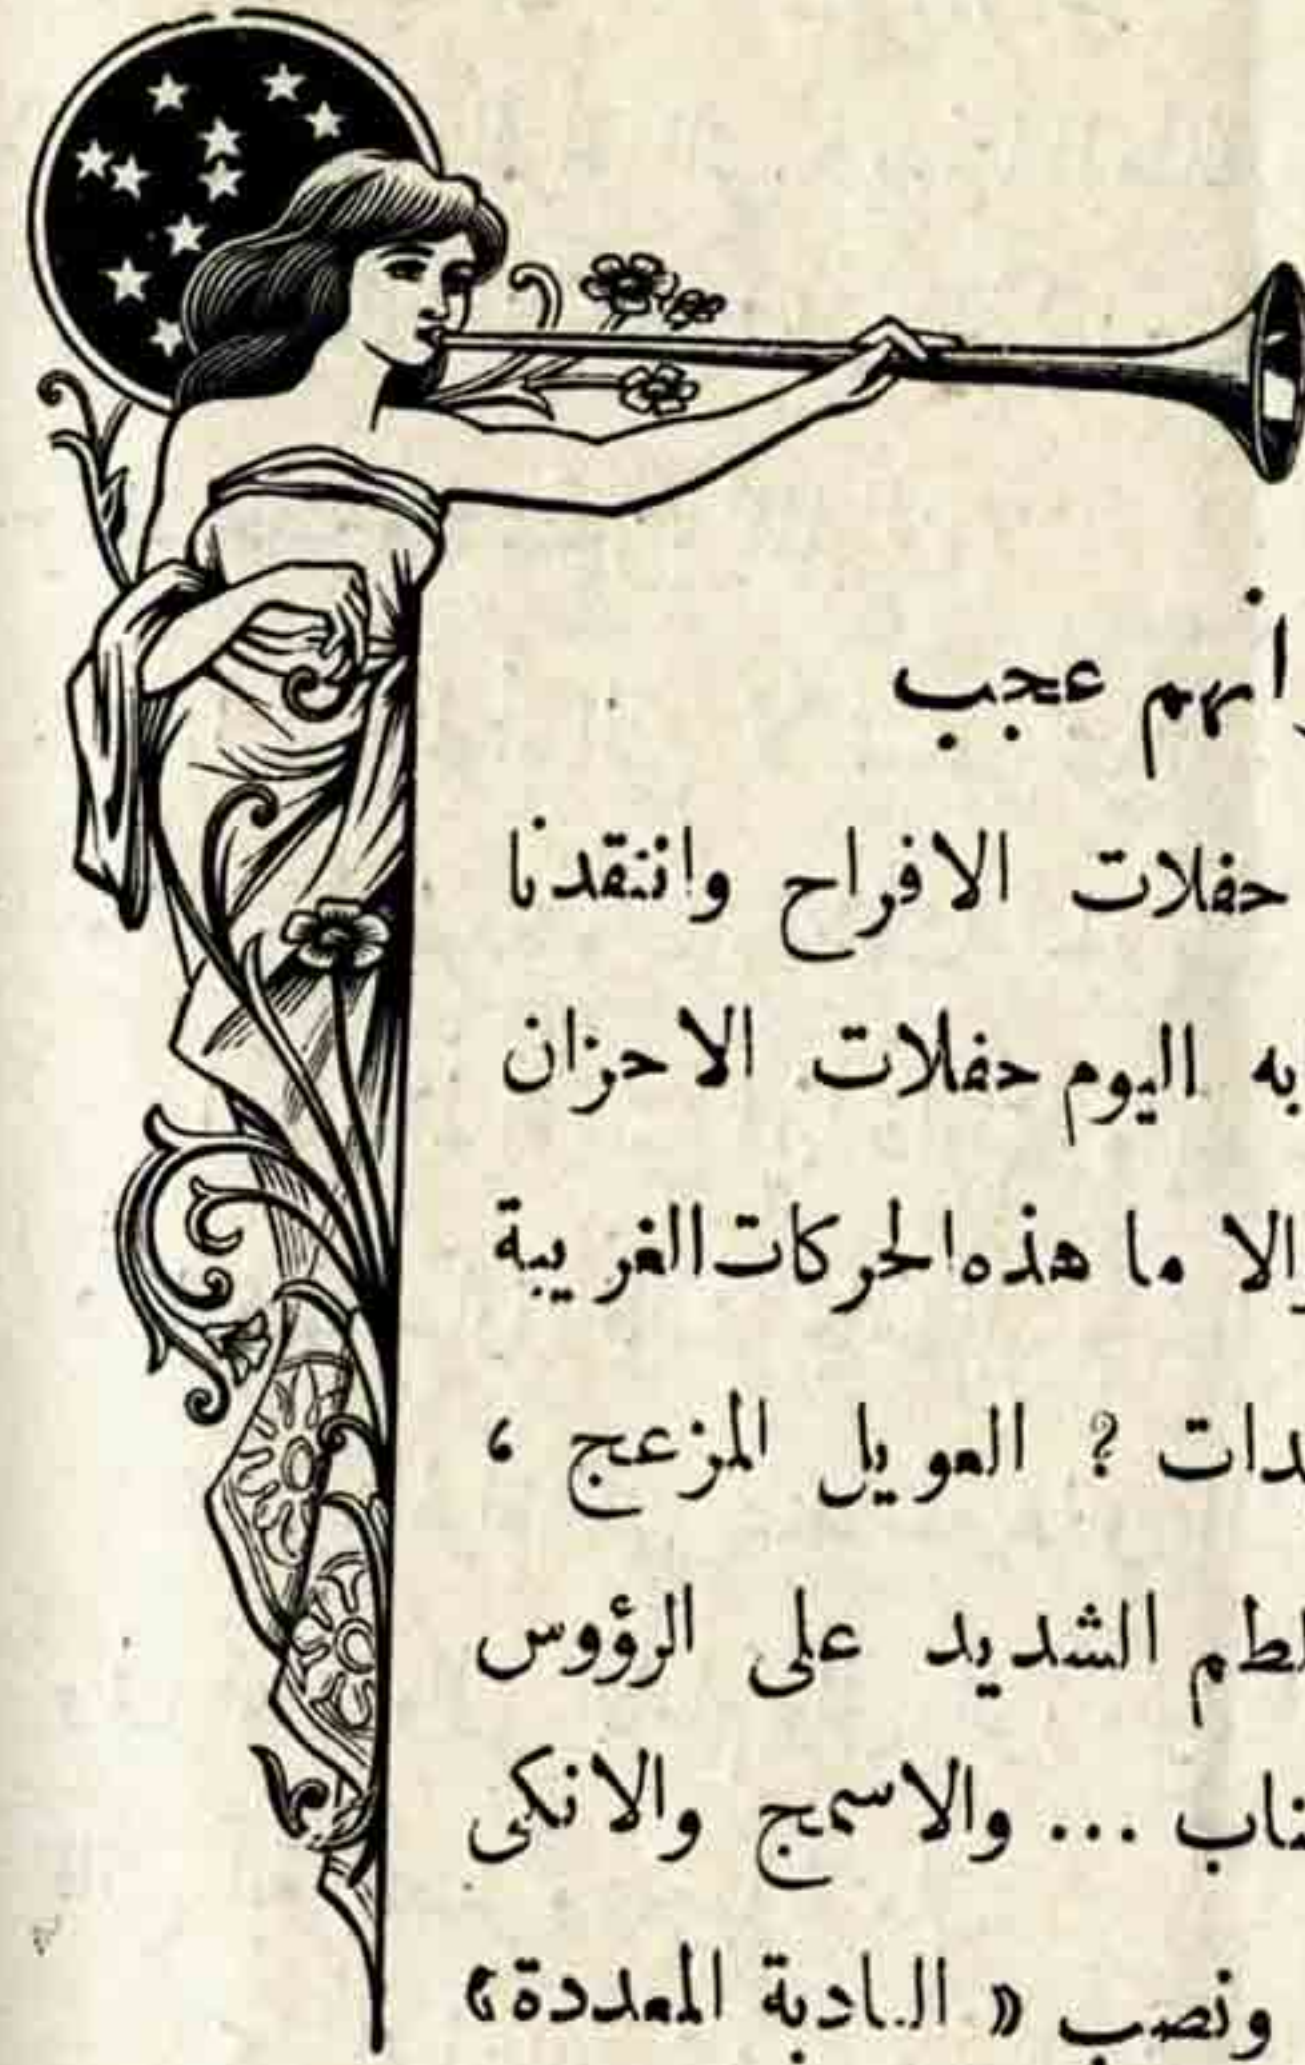 انهم عجب
حفلات الافراح وانتقدنا
به اليوم حفلات الاحزان
الا ما هذه الحركات الغريبة
دات ? العويل المزعج ،
لطم الشديد على الرؤوس
ناب ... والاسمج والانكى
ونصب « البادبة المعددة »